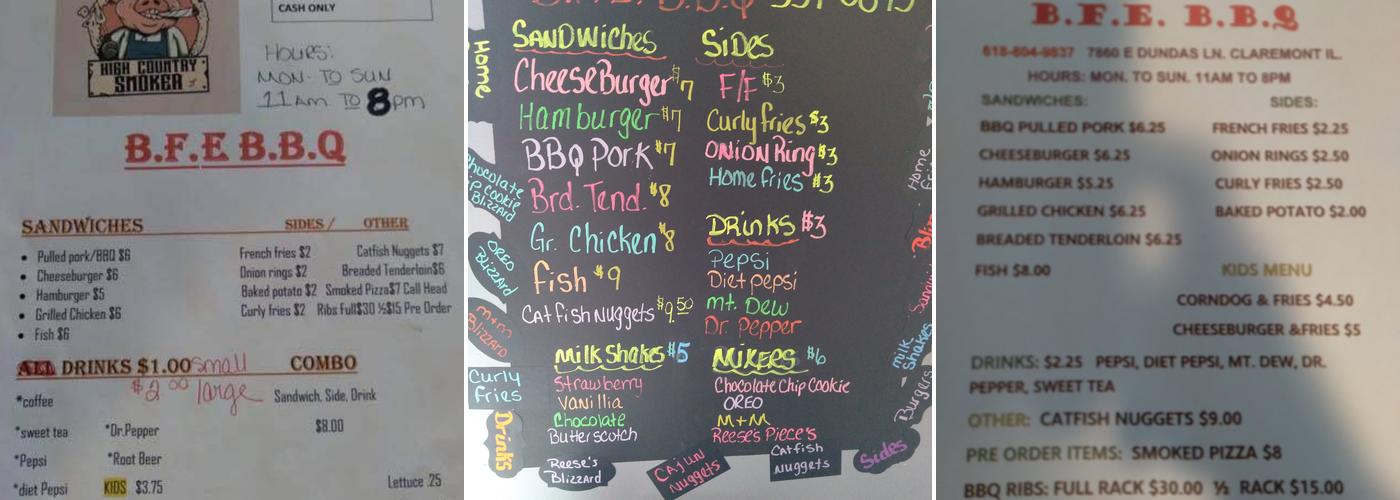 CASH ONLY
HIGH COUNTRY
SMOKER
HOURS:
MON. TO SUN
11AM TO 8PM
B.F.E B.B.Q
SANDWICHES
SIDES / OTHER
• Pulled pork/BBQ $6
• Cheeseburger $6
• Hamburger $5
• Grilled Chicken $6
• Fish $6
French fries $2 Catfish Nuggets $7
Onion rings $2 Breaded Tenderloin$6
Baked potato $2 Smoked Pizza$7 Call Head
Curly fries $2 Ribs Full$30 ½$15 Pre Order
ALL DRINKS $1.00 small
$2.00 large
COMBO
Sandwich, Side, Drink
$8.00
*coffee
*sweet tea *Dr.Pepper
*Pepsi *Root Beer
*diet Pepsi KIDS $3.75
Lettuce .25
Home
SANDWICHES
CheeseBurger $7
Hamburger $7
BBQ Pork $7
Brd. Tend. $8
Gr. Chicken $8
Fish $9
Catfish Nuggets $9.50
SIDES
F/F $3
Curly fries $3
ONION Ring $3
Home fries $3
DRINKS $3
Pepsi
Diet pepsi
mt. Dew
Dr. Pepper
Milk Shakes $5
Strawberry
Vanillia
Chocolate
Butterscotch
MIXERS $6
Chocolate Chip Cookie
OREO
M+M
Reese's Piece's
Chocolate
Cookie
Blizzard
OREO
Blizzard
m+m
Blizzard
Curly
Fries
Drinks
Reese's
Blizzard
CAJUN
Nuggets
Catfish
Nuggets
Sides
Home
milk
Shakes
Burgers
B.F.E. B.B.Q
618-804-9837 7860 E DUNDAS LN. CLAREMONT IL.
HOURS: MON. TO SUN. 11AM TO 8PM
SANDWICHES: SIDES:
BBQ PULLED PORK $6.25 FRENCH FRIES $2.25
CHEESEBURGER $6.25 ONION RINGS $2.50
HAMBURGER $5.25 CURLY FRIES $2.50
GRILLED CHICKEN $6.25 BAKED POTATO $2.00
BREADED TENDERLOIN $6.25
FISH $8.00 KIDS MENU
CORNDOG & FRIES $4.50
CHEESEBURGER &FRIES $5
DRINKS: $2.25 PEPSI, DIET PEPSI, MT. DEW, DR.
PEPPER, SWEET TEA
OTHER: CATFISH NUGGETS $9.00
PRE ORDER ITEMS: SMOKED PIZZA $8
BBQ RIBS: FULL RACK $30.00 ½ RACK $15.00